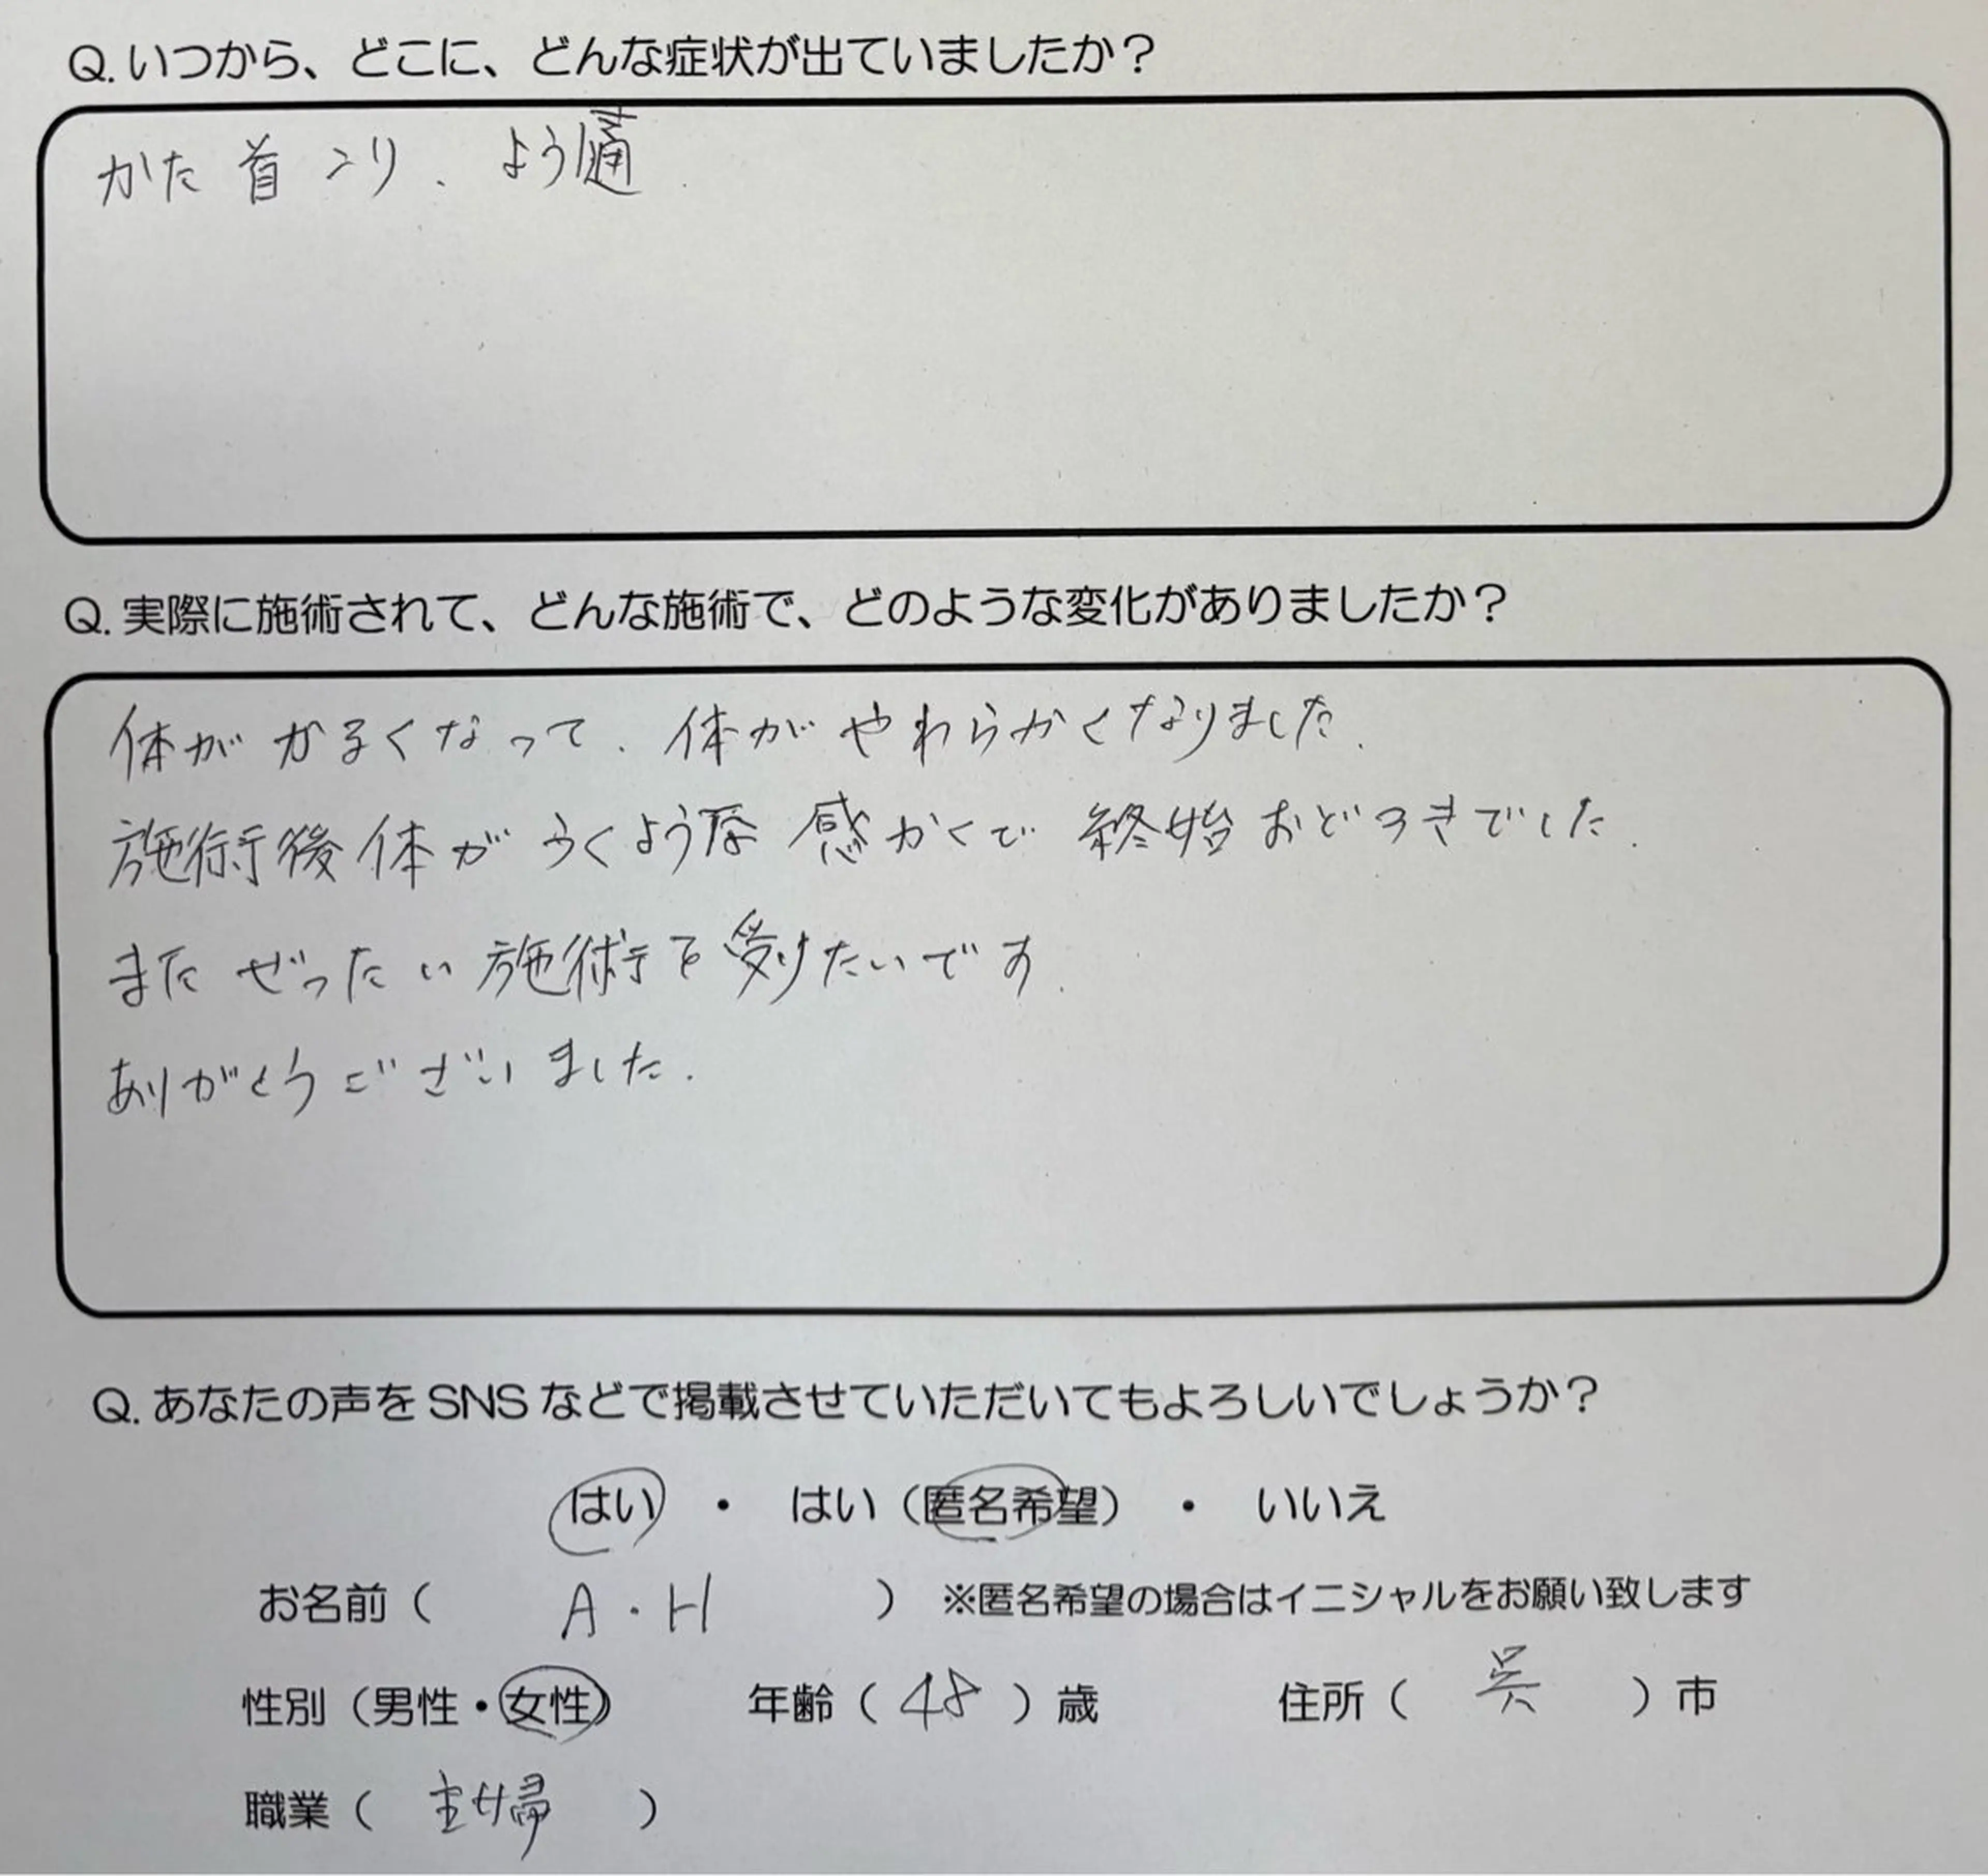 Q. いつから、どこに、どんな症状が出ていましたか？
かた 首 こり、よう通
Q. 実際に施術されて、どんな施術で、どのような変化がありましたか？
体が かるくなって、体が やわらかくなりました。
施術後体が うくような 感かくで 終始 おどろきでした。
また ぜったい 施術を受けたいです。
ありがとうございました。
Q. あなたの声を SNS などで掲載させていただいてもよろしいでしょうか？
はい ・ はい（匿名希望） ・ いいえ
お名前（ A・H ） ※匿名希望の場合はイニシャルをお願い致します
性別（男性・女性） 年齢（ 48 ）歳 住所（ 呉 ）市
職業（ 主婦 ）